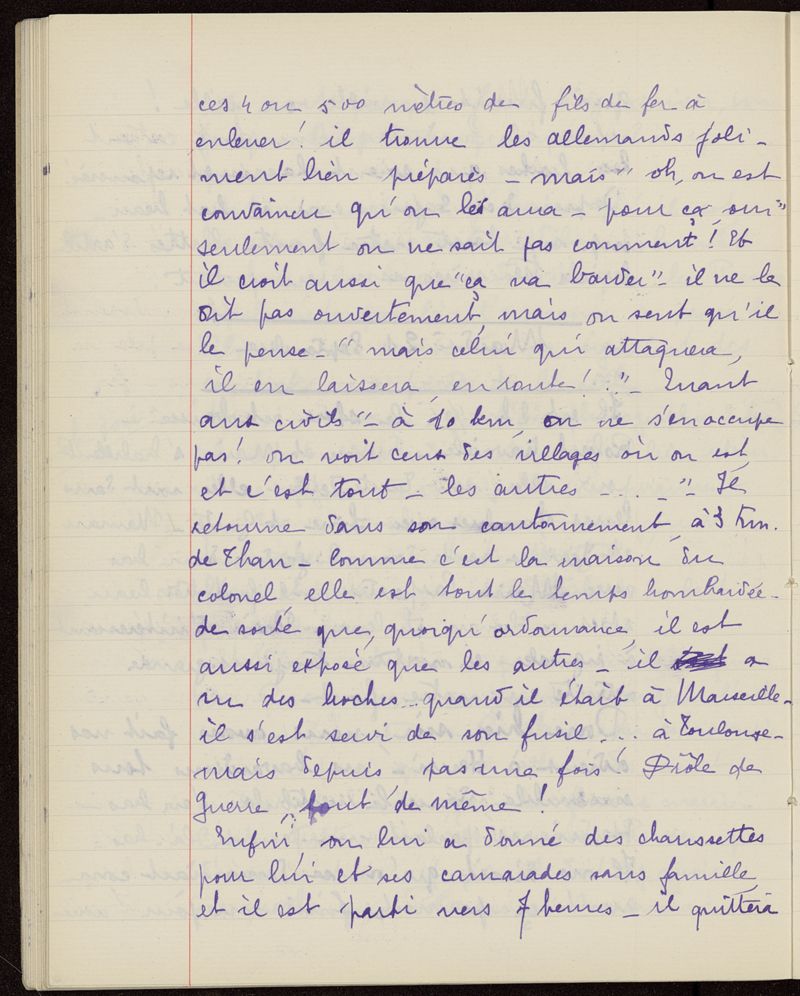 ces 4 ou 500 mètres de fils de fer à
enlever! il trouve les allemands joli-
ment bien préparés – mais "oh, on est
convaincu qu'on les aura – pour ça, oui"
seulement on ne sait pas comment! Et
il croit aussi que "ça va barder" – il ne le
dit pas ouvertement, mais on sent qu'il
le pense – "mais celui qui attaquera,
il en laissera, en route!.." – Quant
aux civils "– à 10 km, on ne s'en occupe
pas! on voit ceux des villages où on est,
et c'est tout – les autres – ... –" Il
retourne dans son cantonnement, à 3 km.
de Thann – Comme c'est la maison du
colonel elle est tout le temps bombardée –
de sorte que, quoiqu'ordonnance, il est
aussi exposé que les autres – il a
vu des boches.. quand il était à Marseille –
il s'est servi de son fusil ... à Toulouse –
mais depuis pas une fois! Drôle de
Guerre, tout de même!
Enfin, on lui a donné des chaussettes
pour lui et ses camarades sans famille,
et il est parti vers 7 heures – il quittera